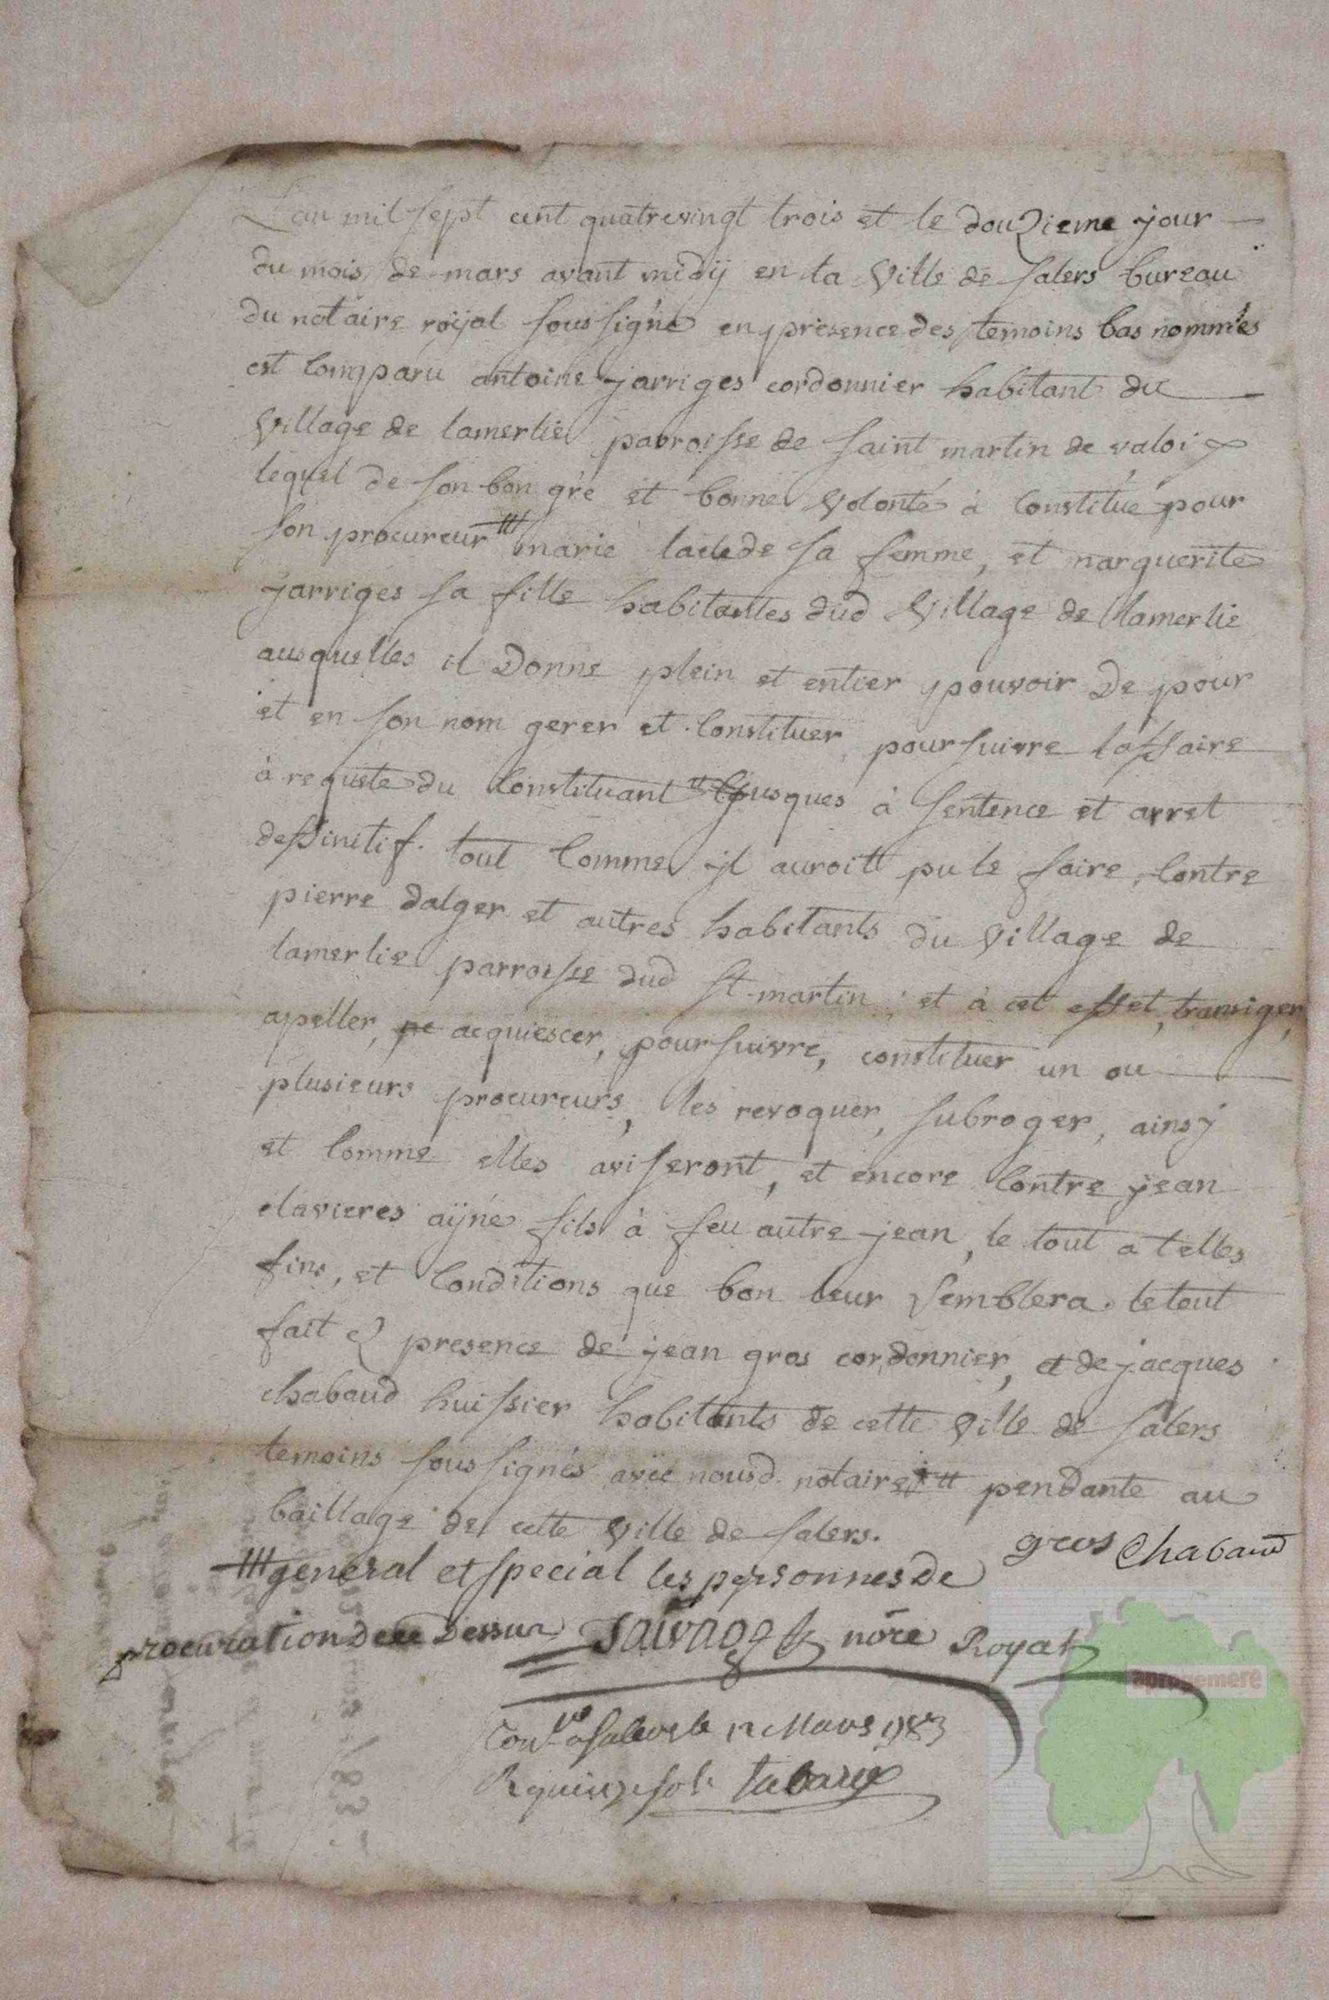 L'an mil sept cent quatrevingt trois et le douzieme jour
du mois de mars avant midÿ en la Ville de salers bureau
du notaire roÿal soussigné en presence des temoins bas nommés
est Comparu antoine jarriges cordonnier habitant du
Village de lamerlie parroisse de saint martin de valoix
lequel de son bon gré et bonne volonté à Constitué pour
son procureur marie laclede sa femme, et marguerite
jarriges sa fille habitantes dud Village de lamerlie
ausquelles il Donne plein et entier pouvoir De pour
et en son nom gerer et Constituer, poursuivre laffaire
à requete du Constituant jusques à sentence et arret
deffinitif. tout Comme il auroit pu le faire, Contre
pierre dalger et autres habitants du Village de
lamerlie parroisse dud st. martin; et à cet effet, transiger,
apeller, acquiescer, poursuivre, constituer un ou
plusieurs procureurs, les revoquer, subroger, ainsy
et Comme elles aviseront, et encore Contre jean
clavieres aÿné fils à feu autre jean, le tout a telles
fins, et Conditions que bon leur semblera. le tout
fait presence de jean gros cordonnier, et de jacques
chabaud huissier habitants de cette Ville de salers
temoins soussignés avec nousd. notaire pendante au
baillage de cette Ville de salers.
gros Chabaud
general et special les personnes de
procuration Dessus Sauvage nōre Royal
a Salers le 12 Mars 1783
R quinze sols
aprogemere